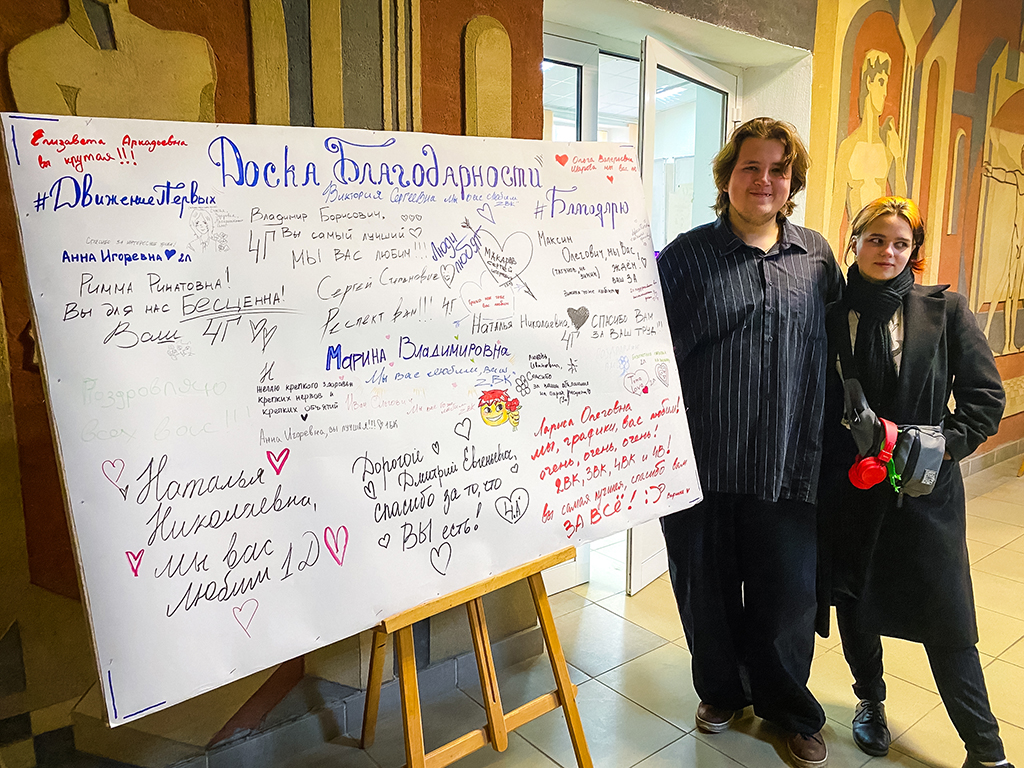 Елизавета Аркадьевна
вы крутая!!!
Доска Благодарности
#ДвижениеПервых
Виктория Сергеевна мы вас любим
2ВК
#Благодарю
Ольга Валерьевна
Анна Игоревна 2Л
Римма Ринатовна!
Вы для нас Бесценна!
Ваш 4Г
Владимир Борисович.
4Г Вы самый лучший
Мы вас любим!!!
Сергей Степанович
Респект вам!!! 4Г
Люди
любят
Макаров
Максим
Олегович, мы Вас
ждём!
ваш 3А
Наталья Николаевна,
4Г
Спасибо Вам
за Ваш труд!!!
Марина Владимировна
Мы вас любим, ваш
2ВК
Поздравляю
всех вас!!!
Желаю крепкого здоровья
крепких нервов и
крепких объятий
Анна Игоревна, вы лучшая!!!
Наталья
Николаевна,
мы вас
любим 1Д
Дорогой
Дмитрий Евгеньевич,
спасибо за то, что
ВЫ есть!
4Д
Лариса Олеговна
мы, графики, вас любим!
очень, очень, очень!
2ВК, 3ВК, 4ВК и 4В!
вы самая лучшая, спасибо вам
ЗА ВСЁ! :)